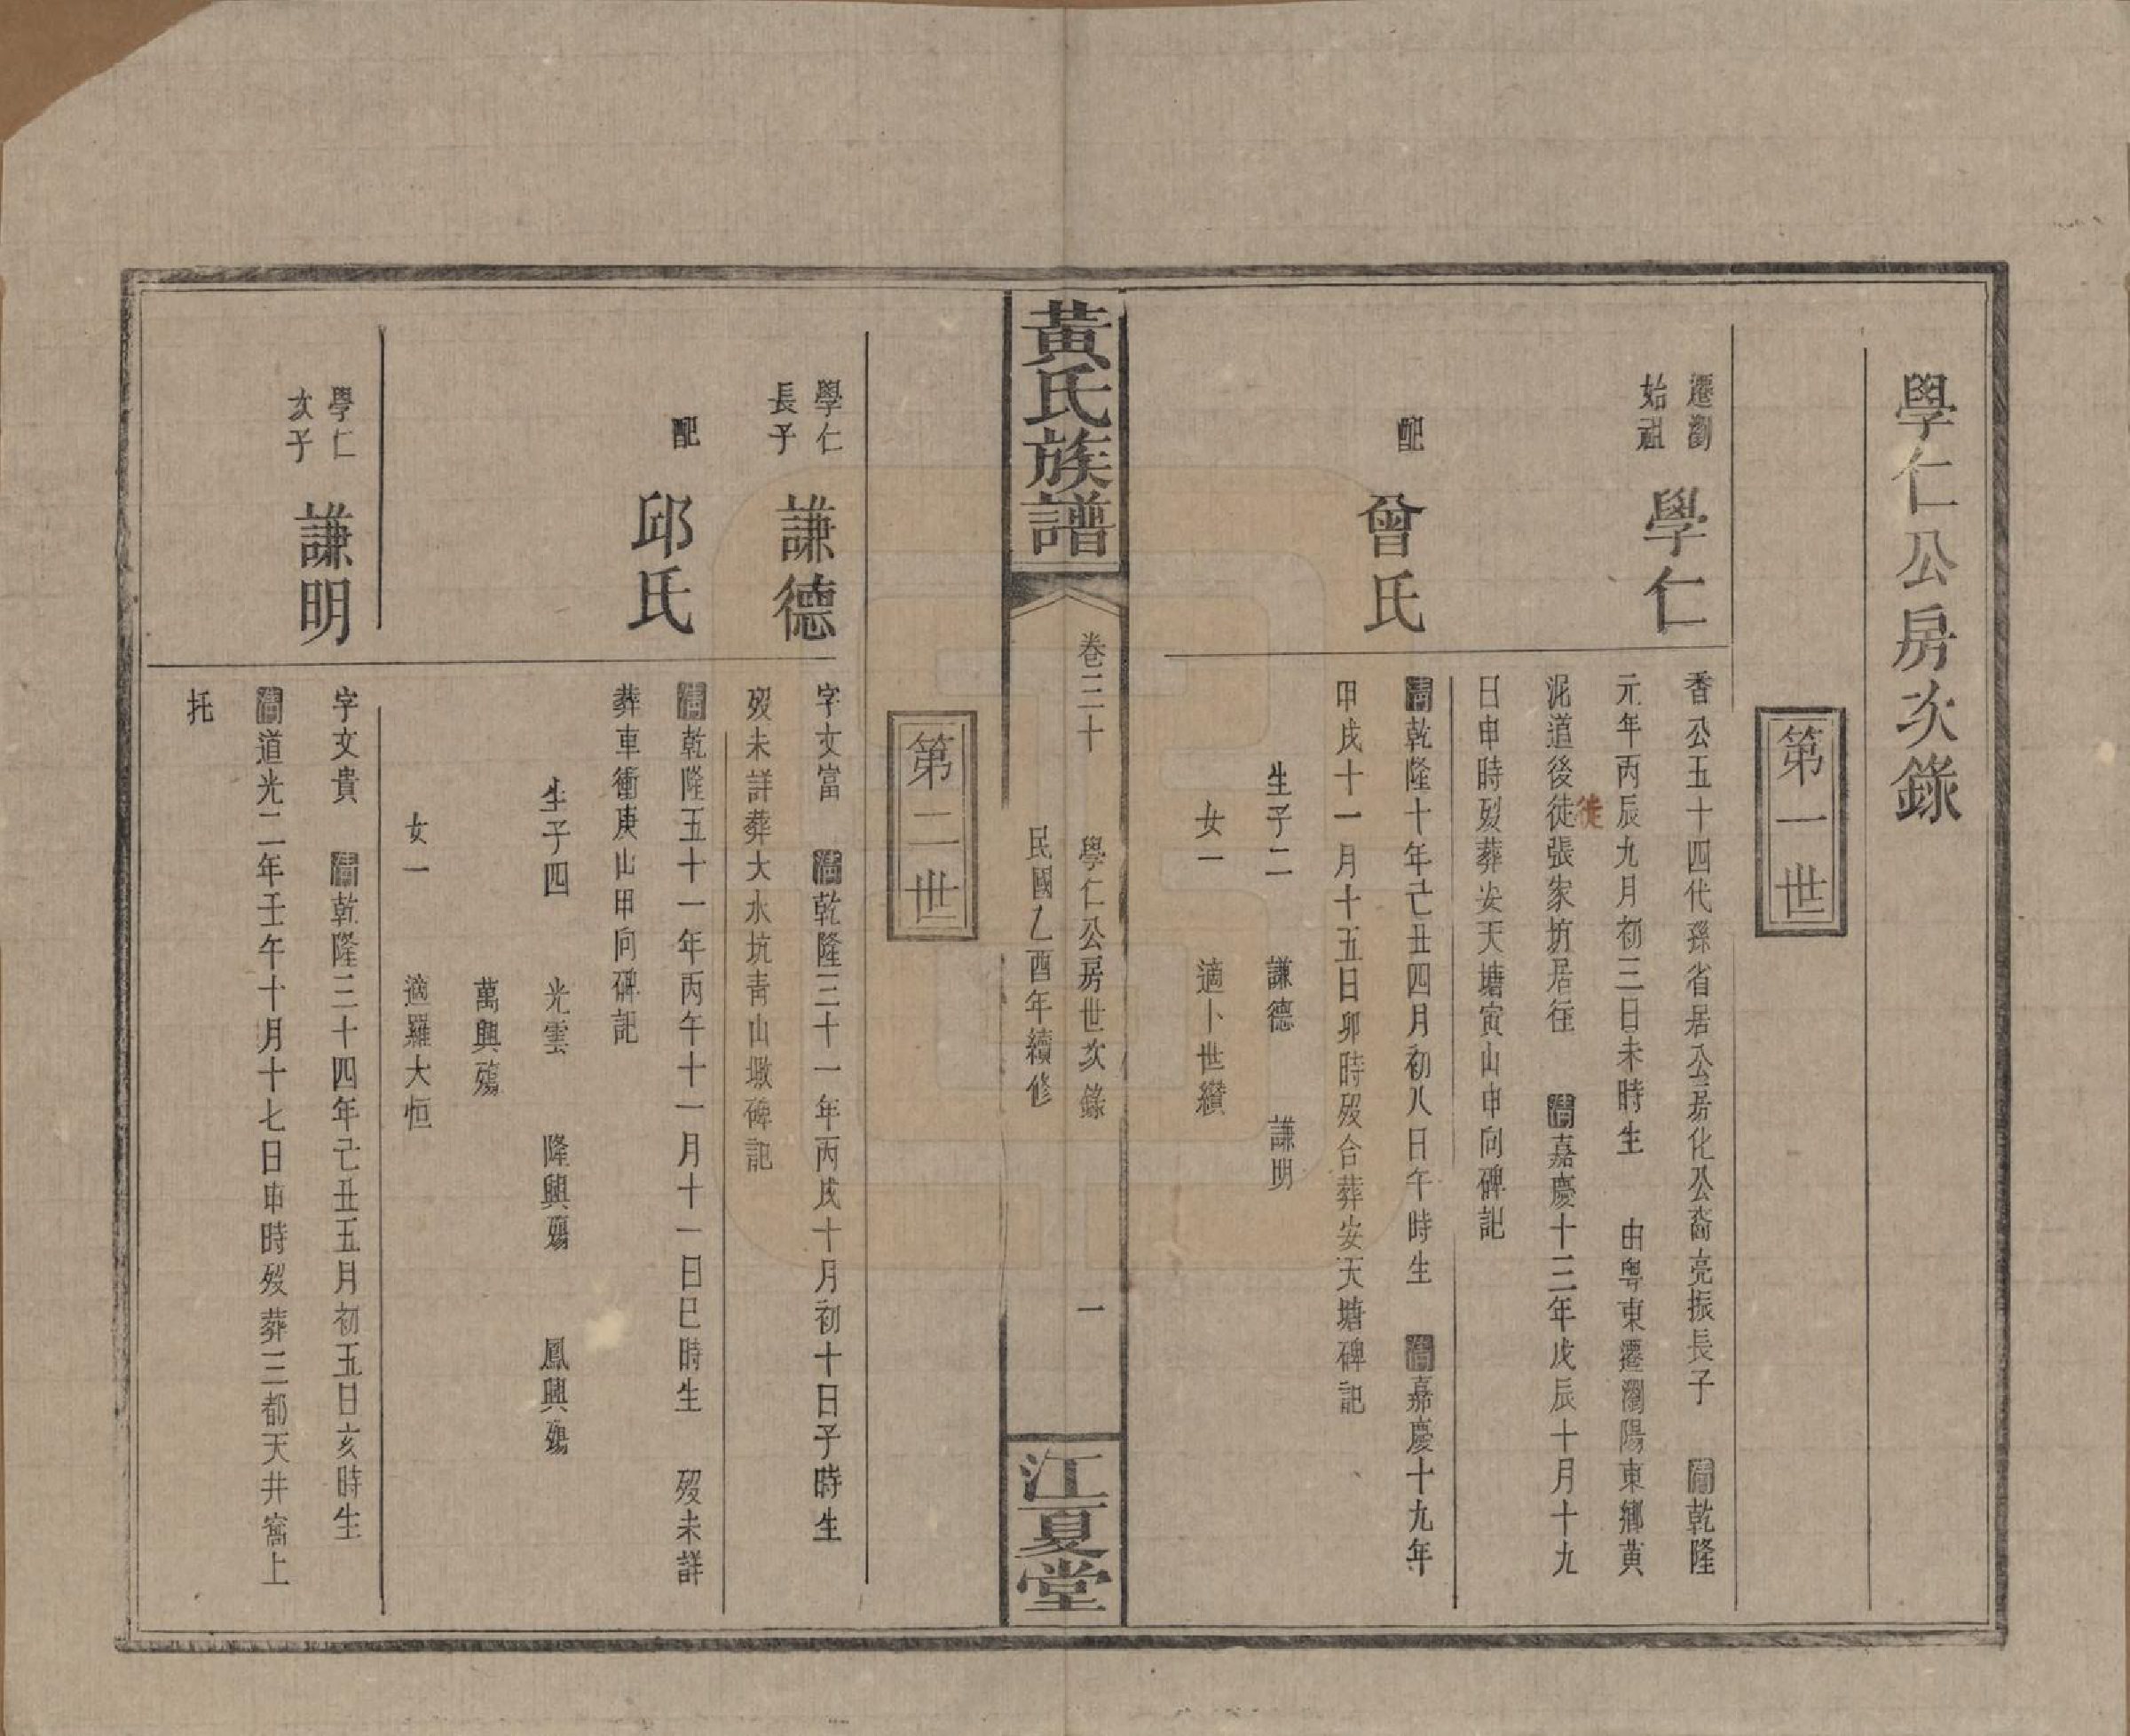 學仁公房次錄
第一世
遷瀏
始祖
學仁
香公五十四代孫省居公房化公裔亮振長子　清乾隆
元年丙辰九月初三日未時生　由粵東遷瀏陽東鄉黃
泥道後徒張家坊居住　清嘉慶十三年戊辰十月十九
徙
日申時歿葬安天塘寅山申向碑記
配
曾氏
清乾隆十年乙丑四月初八日午時生　清嘉慶十九年
甲戌十一月十五日卯時歿合葬安天塘碑記
生子二　謙德　謙明
女一　適卜世纘
黃氏族譜
卷三十　學仁公房世次錄　一
民國乙酉年續修
江夏堂
第二世
學仁
長子
謙德
字文富　清乾隆三十一年丙戌十月初十日子時生
歿未詳葬大水坑青山墩碑記
配
邱氏
清乾隆五十一年丙午十一月十一日巳時生　歿未詳
葬車衝庚山甲向碑記
生子四　光雲　隆興殤　鳳興殤
萬興殤
女一　適羅大恒
學仁
次子
謙明
字文貴　清乾隆三十四年己丑五月初五日亥時生
清道光二年壬午十月十七日申時歿葬三都天井窩上
托